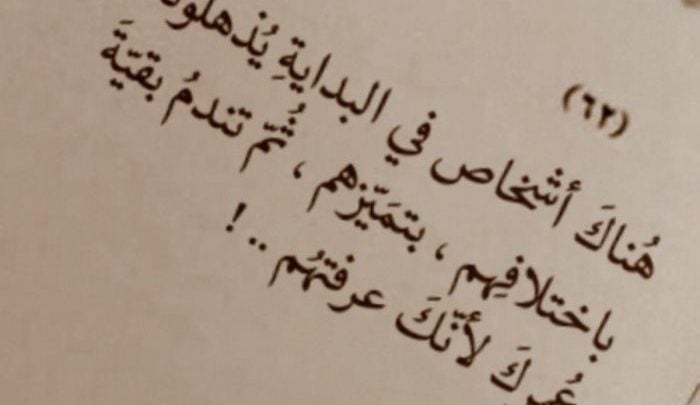 (٦٢)
هُناكَ أشخاص في البدايةِ يُذهلونَ
باختلافِهم ، بتمَيّزهم ، ثُمّ تندمُ بقيّةَ
عُمركَ لأنّكَ عرفتَهُم ..!